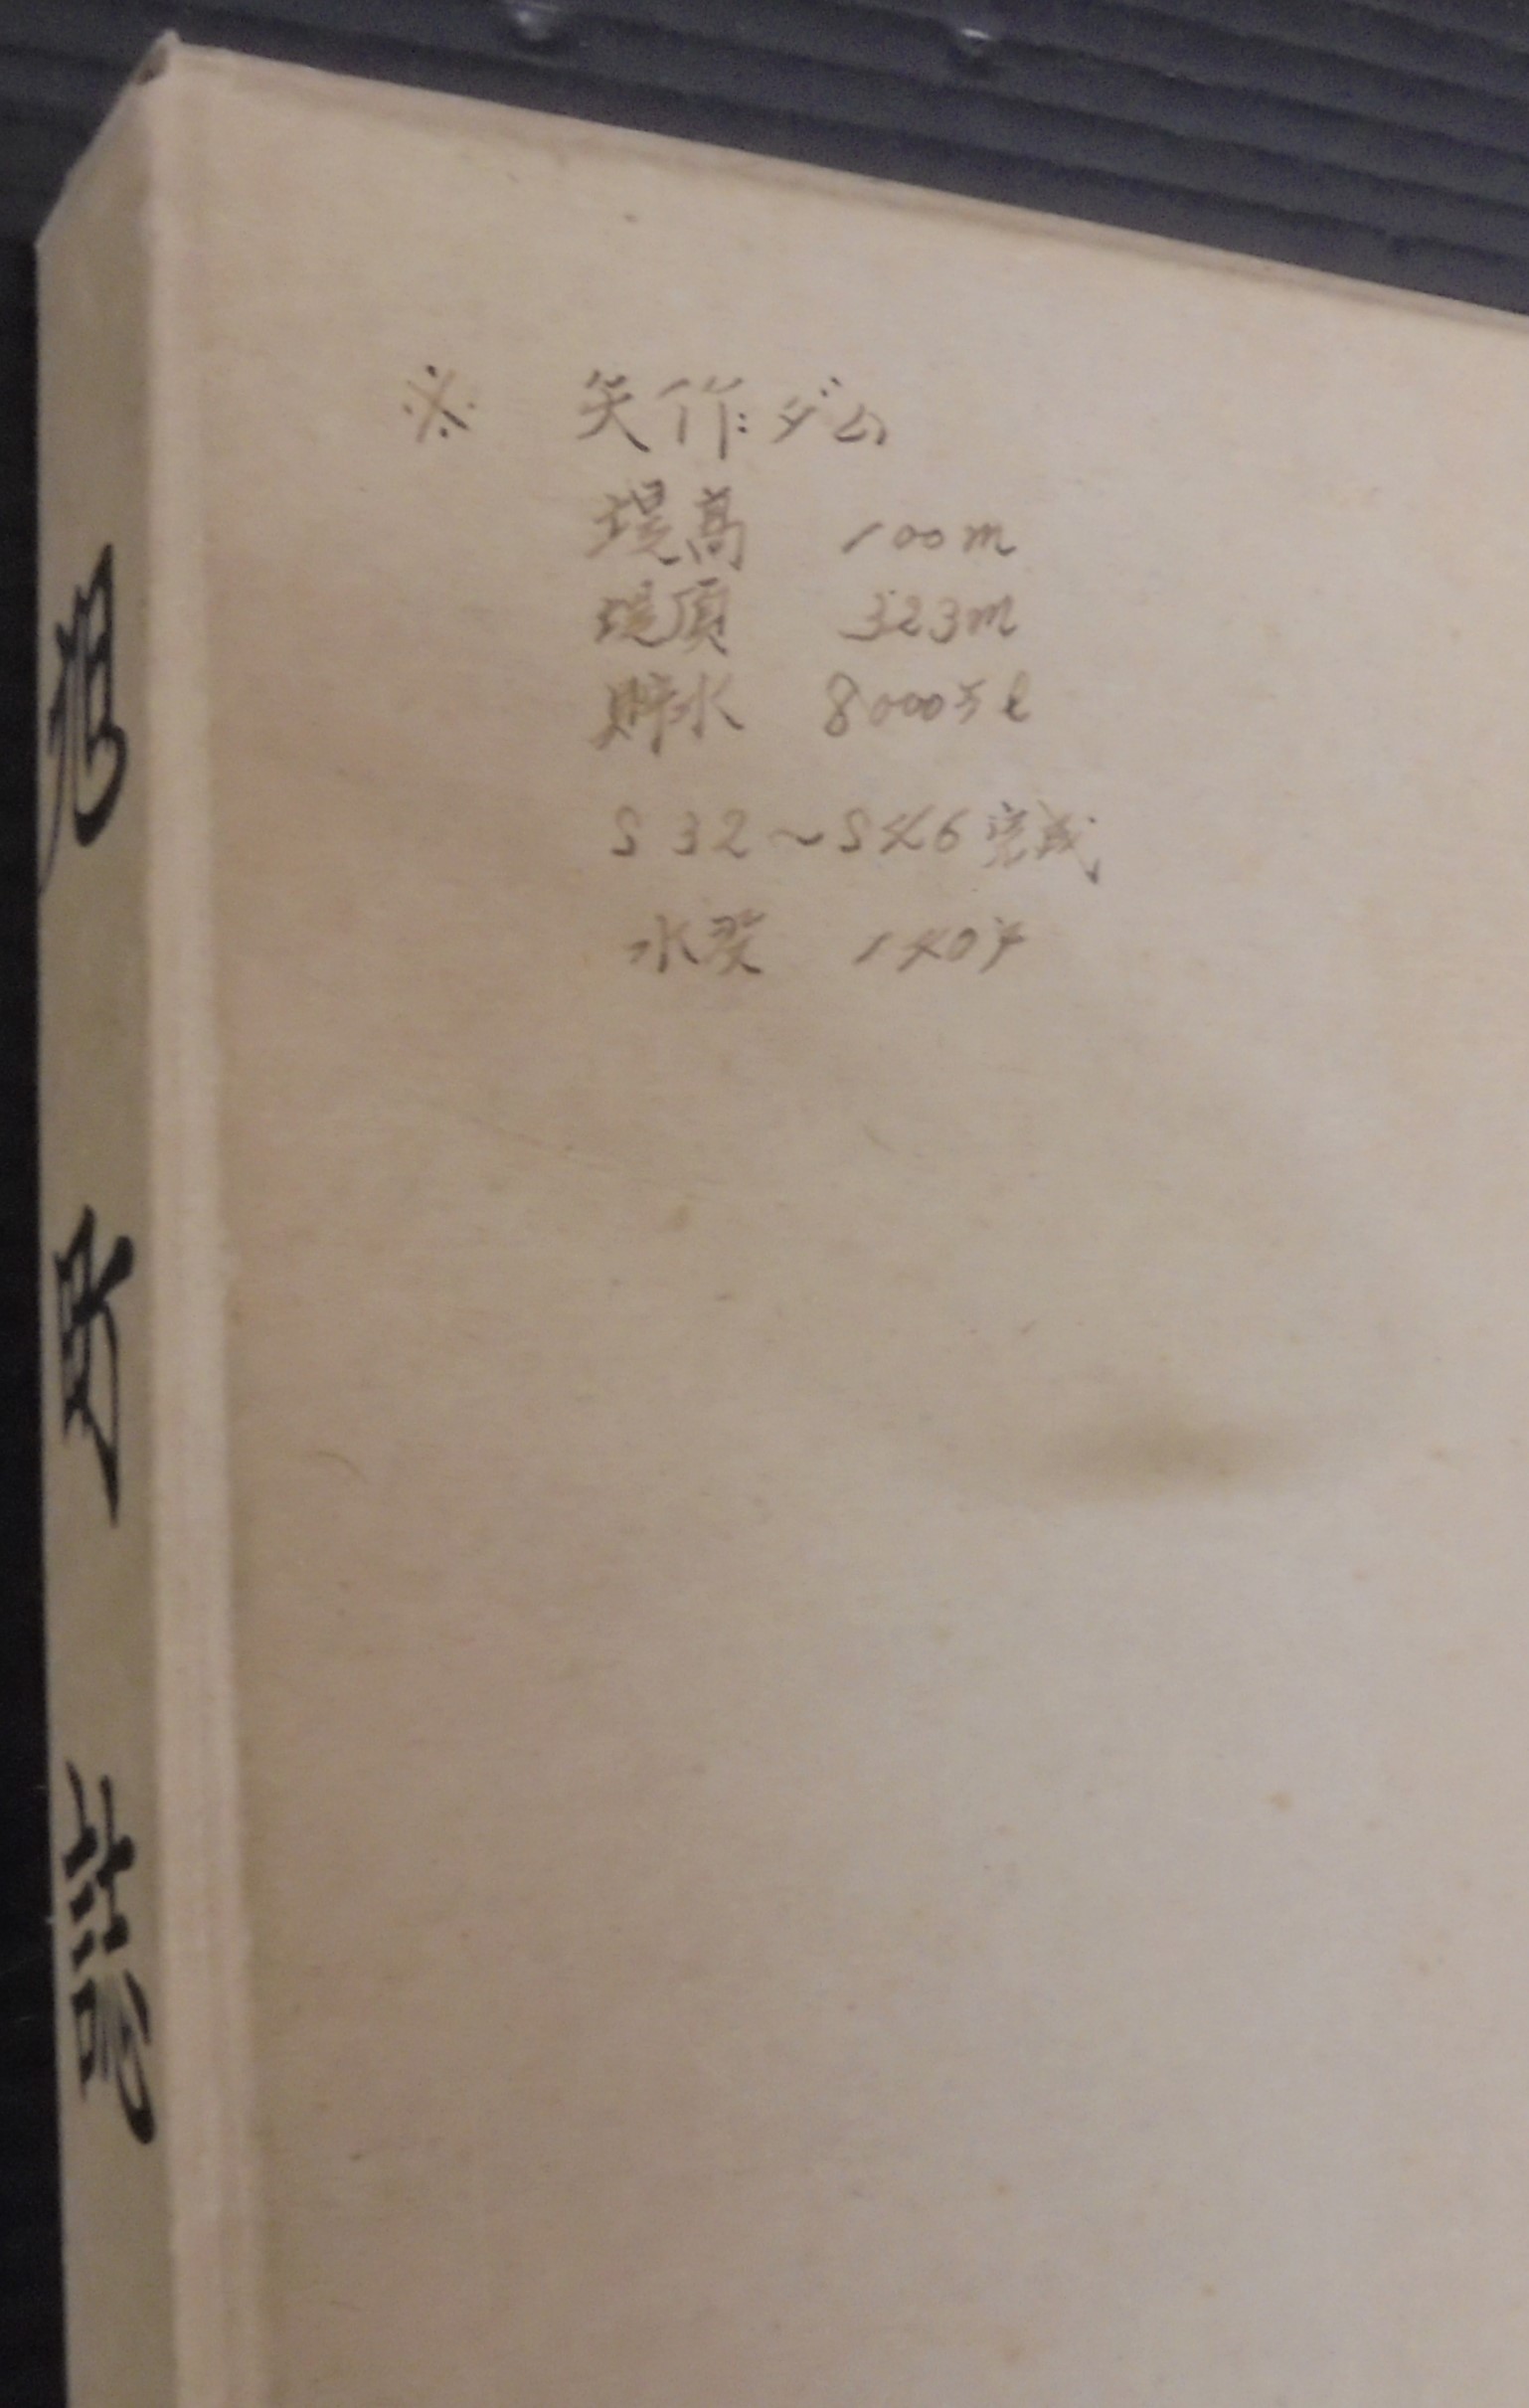 旭町誌
※ 矢作ダム
堤高 100m
堤頂 323m
貯水 8000万l
S32~S46完成
水没 140戸